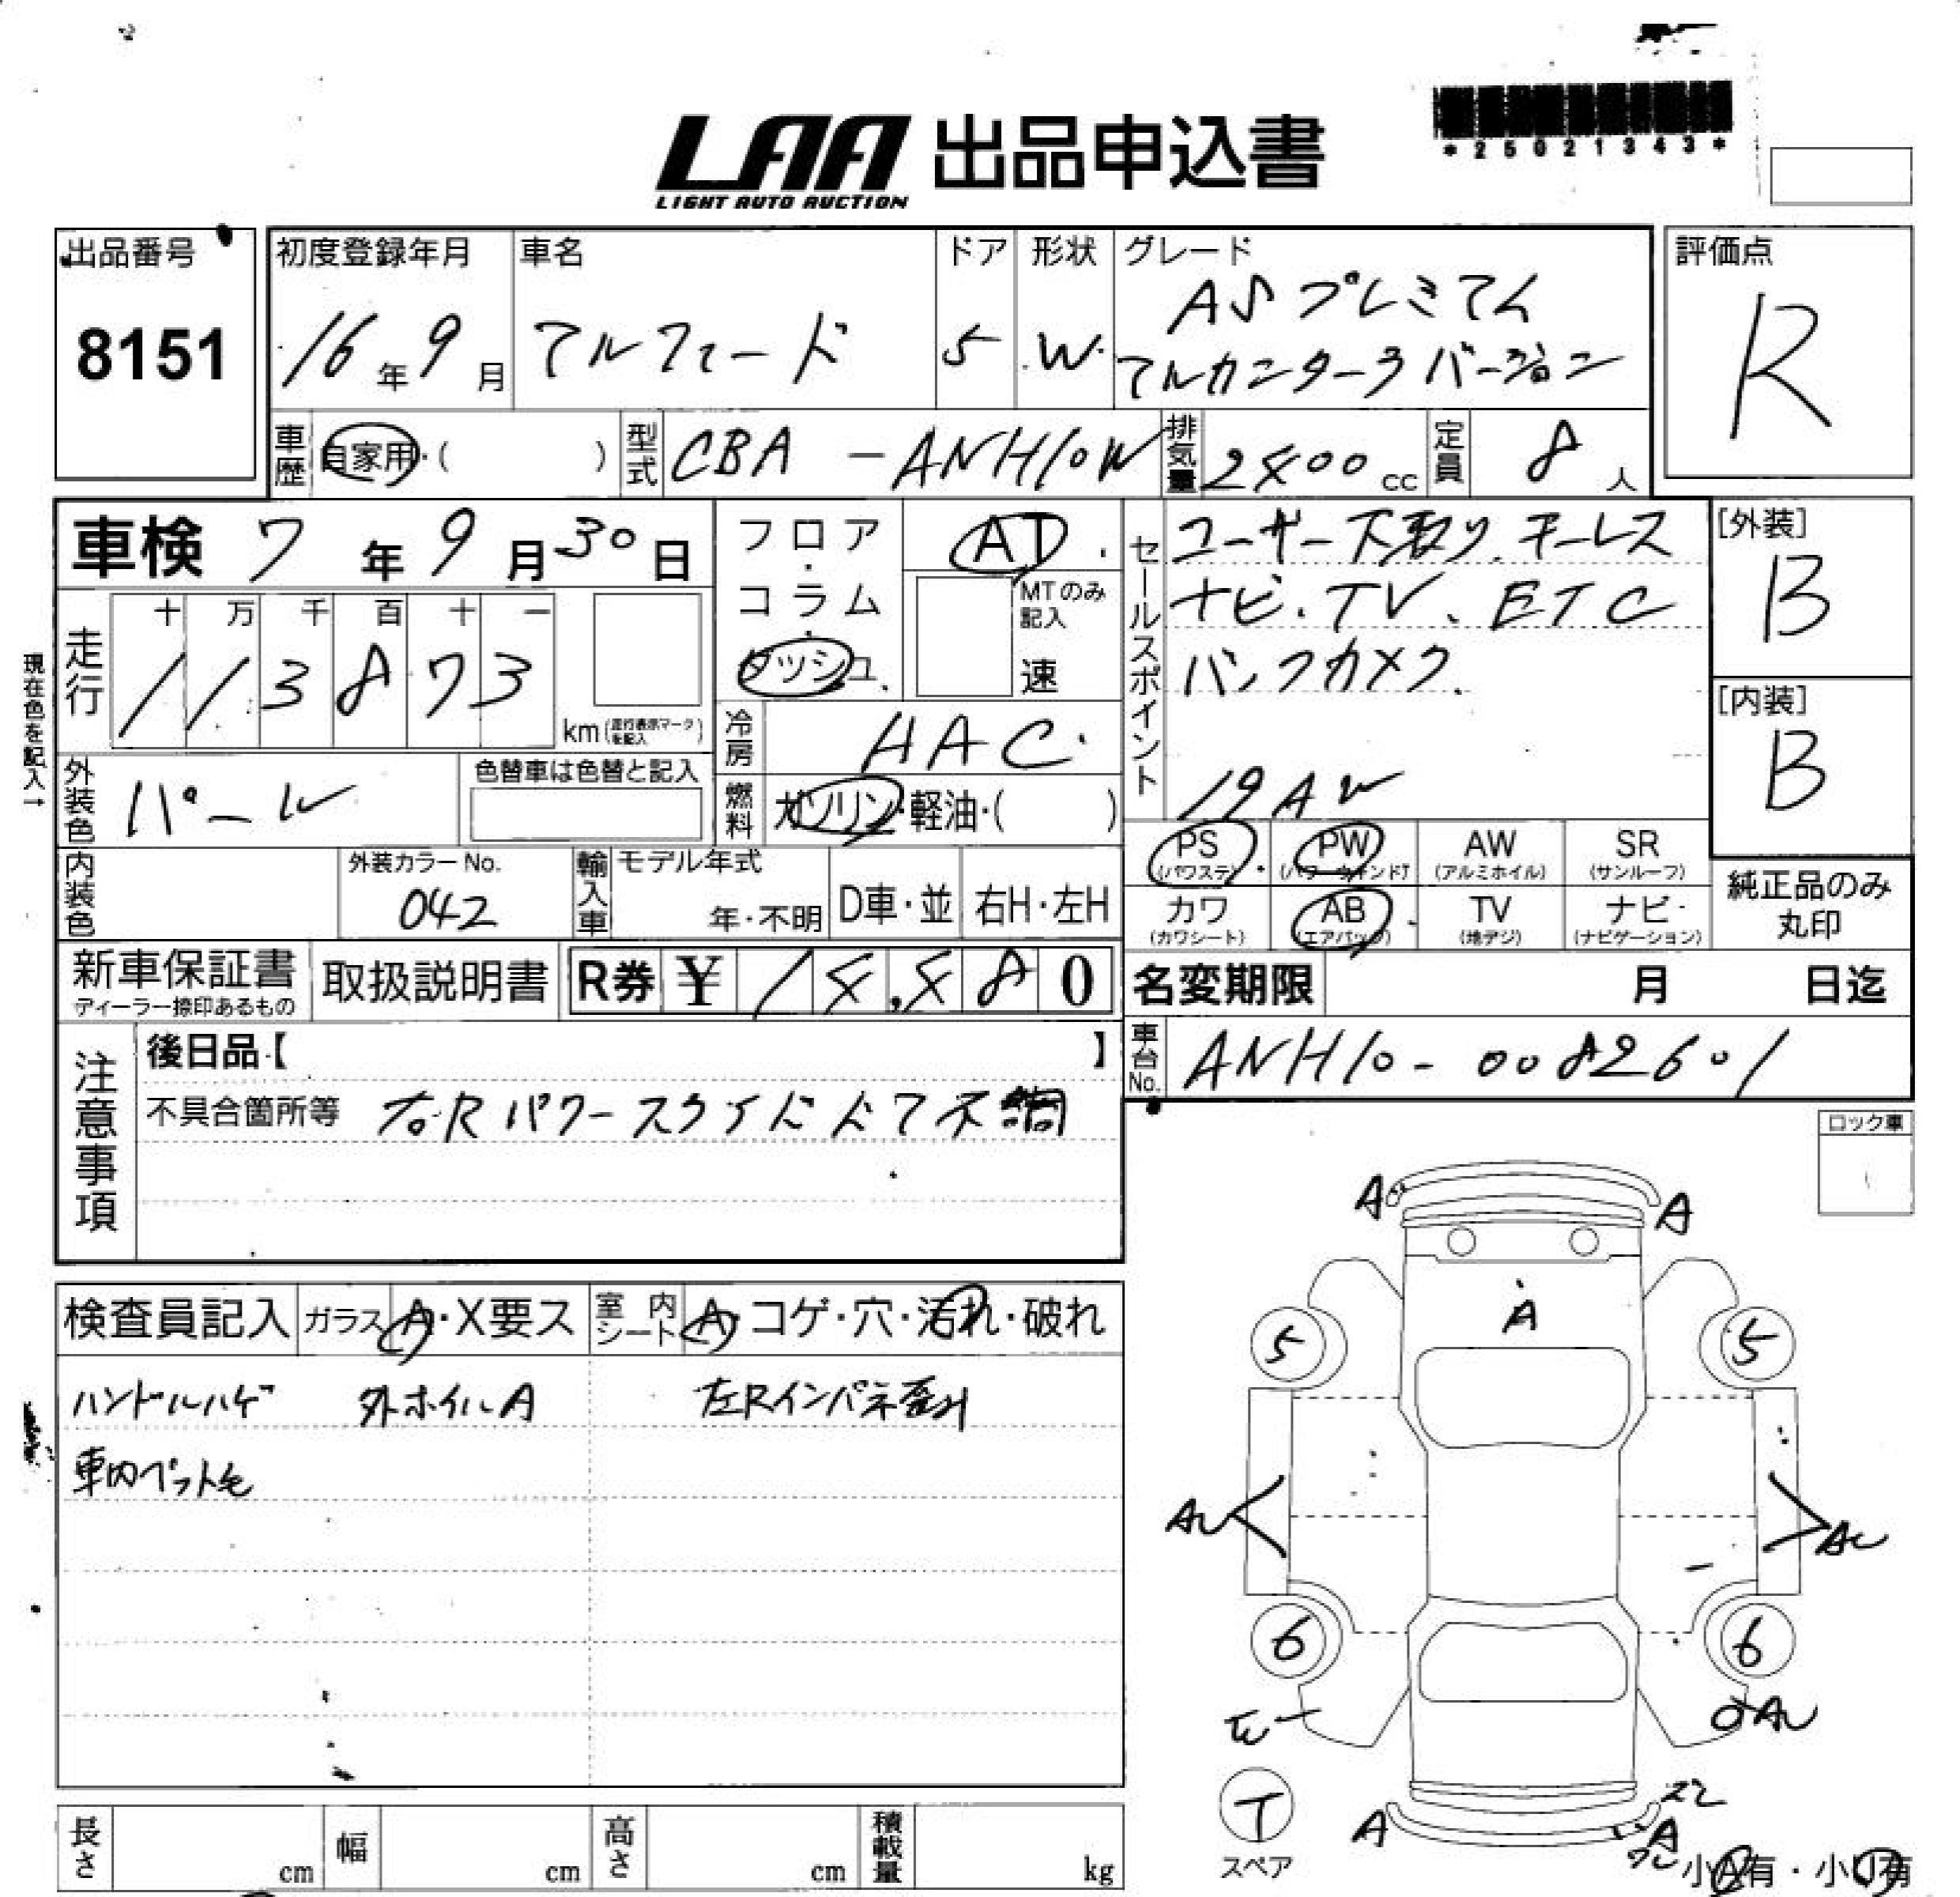 LAA 出品申込書
LIGHT AUTO AUCTION
*25021343*
出品番号
8151
初度登録年月
16年9月
車名
アルファード
ドア
5
形状
W
グレード
ASプレミアム
アルカンターラバージョン
評価点
R
車歴
自家用・( )
型式
CBA-ANH10W
排気量
2400cc
定員
8人
車検 7年9月30日
フロア・コラム・ダッシュ
AT
MTのみ記入
速
セールスポイント
ユーザー下取り、キーレス
ナビ、TV、ETC
バックカメラ
19AW
[外装]
B
[内装]
B
現在色を記入→
走行
十 万 千 百 十 一
113873
km(走行表示マークを記入)
冷房
HAC
外装色
パール
色替車は色替と記入
燃料
ガソリン・軽油・( )
内装色
外装カラーNo.
042
輸入車
モデル年式
年・不明
D車・並
右H・左H
PS
(パワステ)
PW
(パワーウィンドウ)
AW
(アルミホイル)
SR
(サンルーフ)
カワ
(カワシート)
AB
(エアバッグ)
TV
(地デジ)
ナビ
(ナビゲーション)
純正品のみ
丸印
新車保証書
ディーラー捺印あるもの
取扱説明書
R券 ¥ 14,480
名変期限 月 日迄
車台No.
ANH10-0082601
注意事項
後日品【 】
不具合箇所等 右Rパワースライドドア不調
ロック車
検査員記入
ガラス
A・X要ス
室内シート
A・コゲ・穴・汚れ・破れ
ハンドルハゲ 外ホイルA 左Rインパネ歪み
車内ペット毛
A
A
A
5
5
AU
AU
6
6
AU
T
スペア
A
A
小A有・小U有
長さ
cm
幅
cm
高さ
cm
積載量
kg